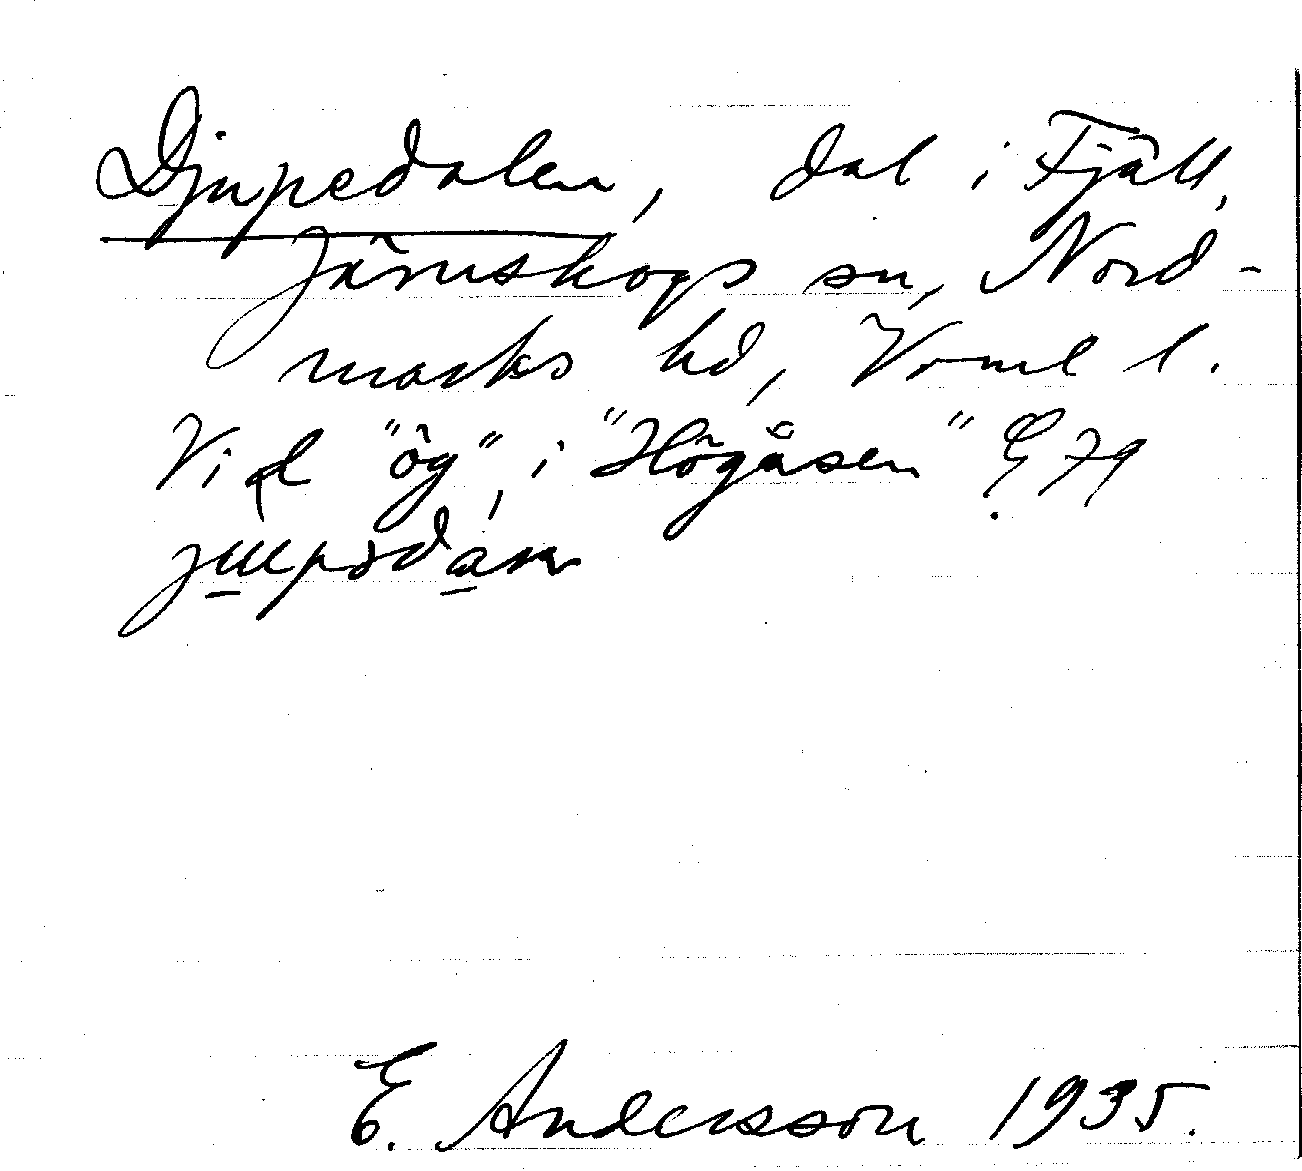 Djupedalen, dal i Fjäll,
Järnskogs sn, Nord-
marks hd, Vrml l.
Vid "ög", i "Högåsen" E. 79
E. Andersson 1935.